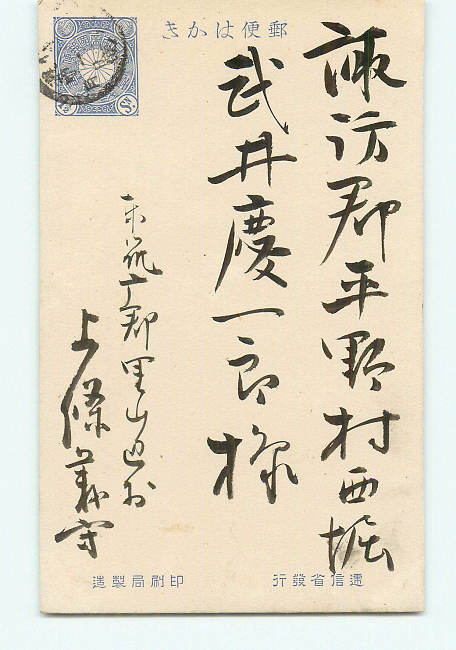 郵便はかき
諏訪郡平野村西堀
武井慶一郎様
東筑广郡里山辺村
上條義守
遞信省發行
印刷局製造